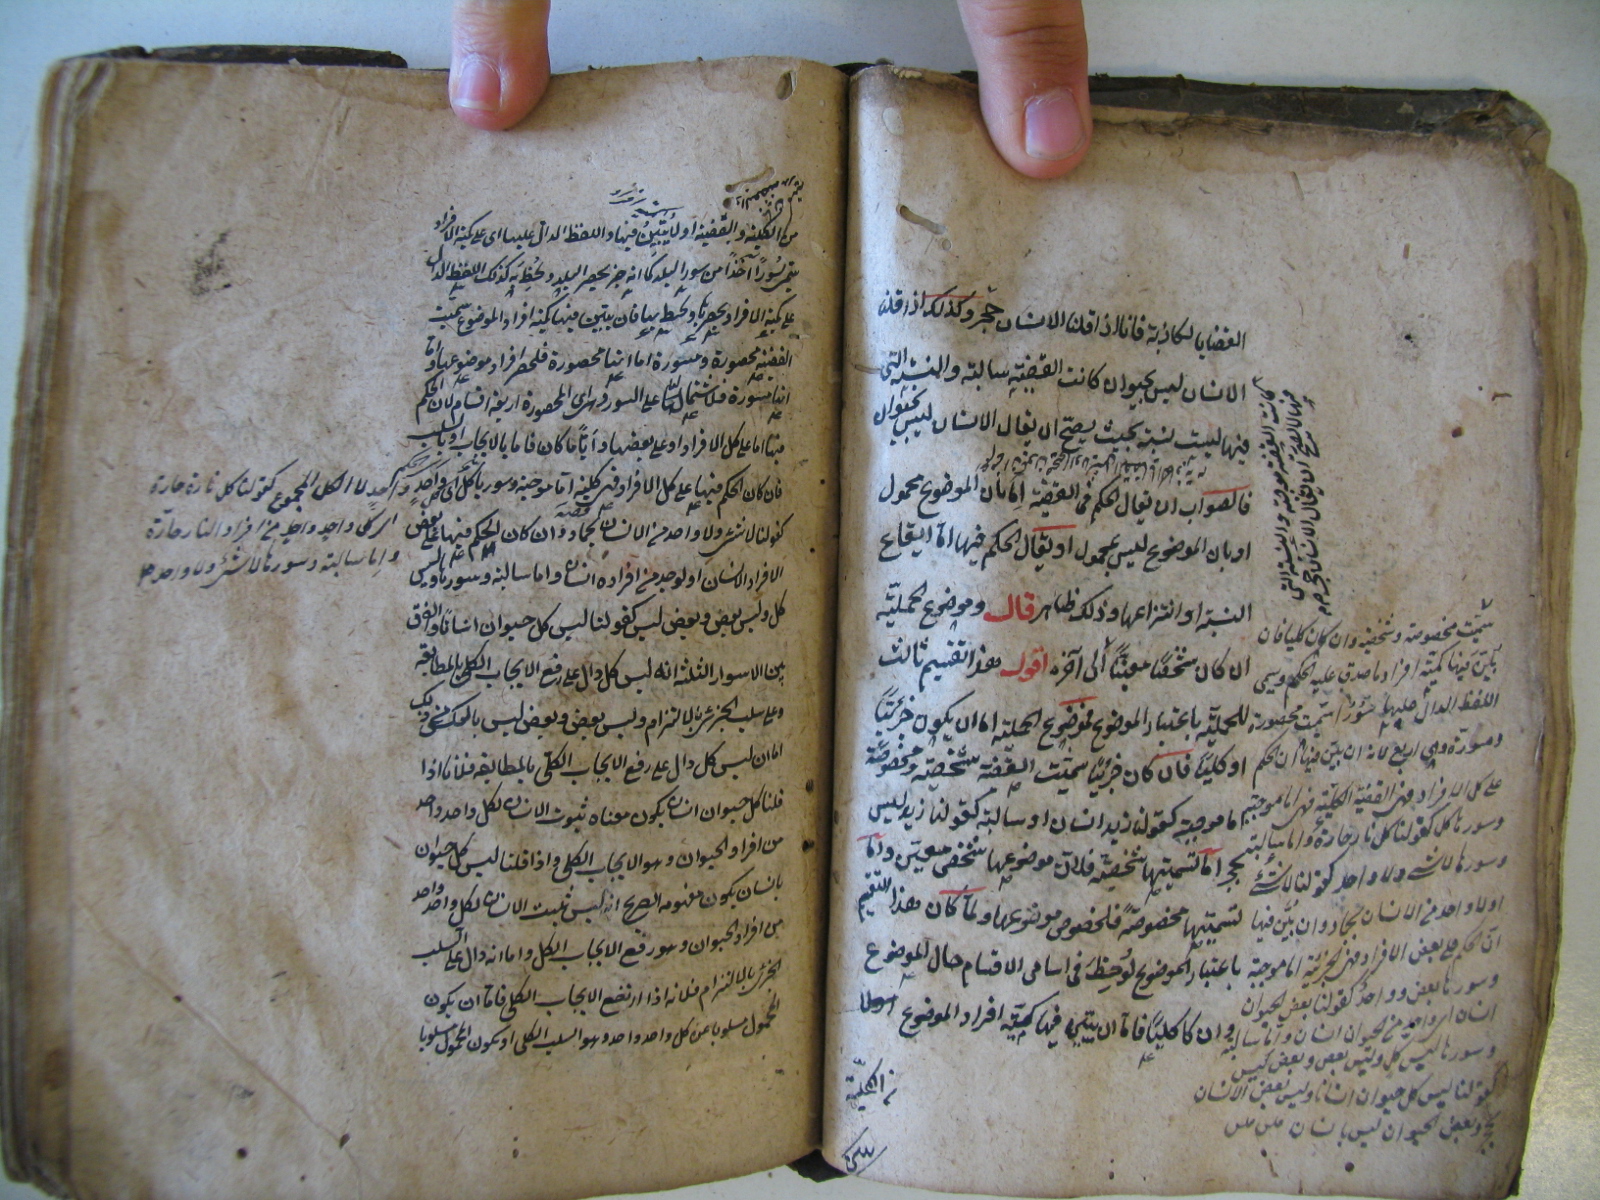 القضايا الكاذبة فانا اذا قلنا الانسان حجر وكذلك اذا قلنا
الانسان ليس بحيوان كانت القضية سالبة والنسبة التي
فيها ليست نسبة بحيث يصح ان يقال الانسان ليس بحيوان
فالصواب ان يقال الحكم في القضية اما بان الموضوع محمول
او بان الموضوع ليس بمحمول او يقال الحكم فيها اما ايقاع
النسبة او انتزاعها وذلك ظاهر قال وموضوع الحملية
ان كان شخصا معينا الى آخره اقول هذا تقسيم ثالث
للحملية باعتبار الموضوع فموضوع الحملية اما ان يكون جزئيا
او كليا فان كان جزئيا سميت القضية شخصية ومخصوصة
اما موجبة كقولنا زيد انسان او سالبة كقولنا زيد ليس
بحجر اما تسميتها شخصية فلان موضوعها شخص معين واما
تسميتها مخصوصة فلخصوص موضوعها ولما كان هذا التقسيم
باعتبار الموضوع لوحظ في اسامي الاقسام حال الموضوع
وان كا كليا فاما ان يتبين فيها كمية افراد الموضوع
من الكلية
كانت القضية موجبة والنسبة التي
فيها لا تصح ان يقال الانسان حجر
سميت مخصوصة وشخصية وان كان كليا فان
بين فيها كمية افراد ما صدق عليه الحكم وسمي
اللفظ الدال عليها سورا سميت محصورة
ومسورة وهي اربع لانه ان بين فيها ان الحكم
على كل الافراد فهي القضية الكلية فهي اما موجبة
وسورها كل كقولنا كل نار حارة واما سالبة
وسورها لا شيء ولا واحد كقولنا لا شيء
ولا واحد من الانسان بجماد وان بين فيها
ان الحكم على بعض الافراد فهي الجزئية اما موجبة
وسورها بعض وواحد كقولنا بعض الحيوان
انسان او واحد من الحيوان انسان واما سالبة
وسورها ليس كل وليس بعض وبعض ليس
كقولنا ليس كل حيوان انسانا وليس بعض الانسان
بحجر وبعض الحيوان ليس بانسان
من الكلية والبعضية او لا يتبين فيها واللفظ الدال عليها اي على كمية الافراد
يسمى سورا اخذا من سور البلد كما انه يحصر البلد ويحيط به كذلك اللفظ الدال
على كمية الافراد يحصرها ويحيط بها فان يتبين فيها كمية افراد الموضوع سميت
القضية محصورة ومسورة اما انها محصورة فلحصر افراد موضوعها واما
انها مسورة فلاشتمالها على السور وهي اي المحصورة اربعة اقسام لان الحكم
فيها اما على كل الافراد او على بعضها وايا ما كان فاما بالايجاب او بالسلب
فان كان الحكم فيها على كل الافراد فهي كلية اما موجبة وسورها كل اي كل واحد
كقولنا لا شيء ولا واحد من الانسان بجماد وان كان الحكم فيها على بعض
الافراد
كل وليس بعض وبعض ليس كقولنا ليس كل حيوان انسانا والفرق
بين الاسوار الثلثة انه ليس كل دال على رفع الايجاب الكلي بالمطابقة
وعلى سلب الجزئي بالالتزام وليس بعض وبعض ليس بالعكس من ذلك
اما ان ليس كل دال على رفع الايجاب الكلي بالمطابقة فلانا اذا
قلنا كل حيوان انسان يكون معناه ثبوت الانسان لكل واحد واحد
من افراد الحيوان وهو الايجاب الكلي واذا قلنا ليس كل حيوان
بانسان يكون مفهومه الصريح انه ليس ثبت الانسان لكل واحد واحد
من افراد الحيوان وهو رفع الايجاب الكلي واما انه دال على السلب
الجزئي بالالتزام فلانه اذا ارتفع الايجاب الكلي فاما ان يكون
المحمول مسلوبا عن كل واحد واحد وهو السلب الكلي او يكون المحمول مسلوبا
واحد لا الكل المجموع كقولنا كل نار حارة
اي كل واحد واحد من افراد النار حارة
واما سالبة وسورها لا شيء ولا واحد